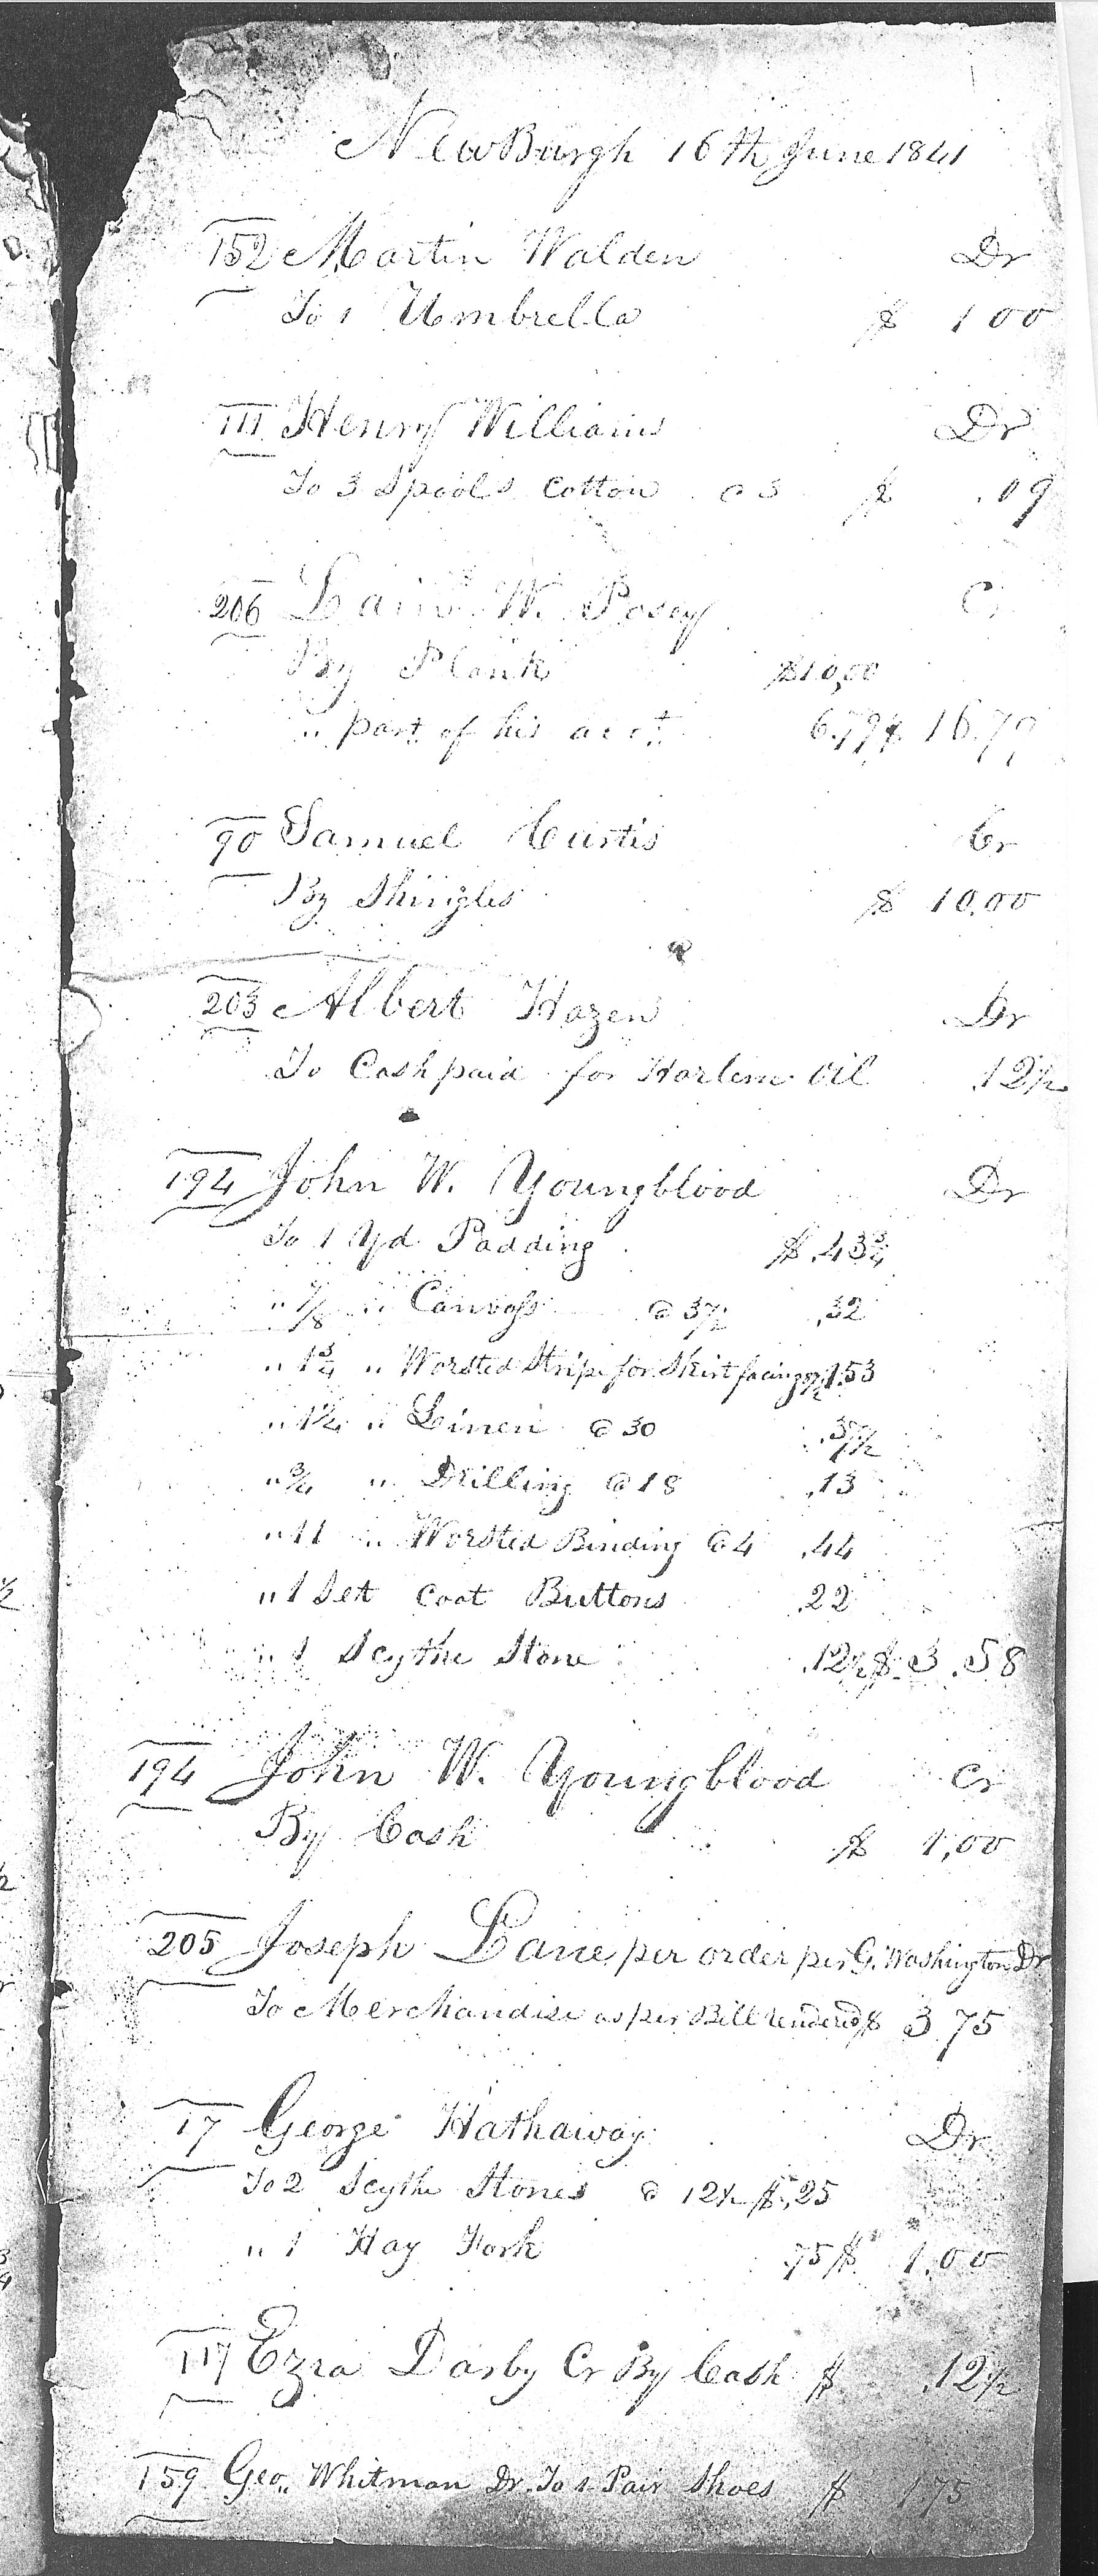 NewBurgh 16th June 1841
152 Martin Walden Dr
To 1 Umbrella $ 1 00
111 Henry Williams Dr
To 3 Spools Cotton @ 3 $ .09
206 W. Posey Cr
By Plank $10,00
" part of his acct 6.79 $ 16.79
90 Samuel Curtis Cr
By Shingles $ 10.00
203 Albert Hazen Dr
To Cash paid for Harlem Oil .12½
194 John W. Youngblood Dr
To 1 Yd Padding $ .43¾
" 7/8 " Canvass @ 37½ .32
" 1¾ " Worsted Stripe for Skirt facing 1.53
" 1¼ " Linen @ 30 .37½
" ¾ " Drilling @ 18 .13
" 11 " Worsted Binding @ 4 .44
" 1 Set Coat Buttons .22
" 1 Scythe Stone .12½ $ 3.58
194 John W. Youngblood Cr
By Cash $ 1,00
205 Joseph Lane per order per G. Washington Dr
To Merchandise as per Bill rendered $ 3 75
17 George Hathaway Dr
To 2 Scythe Stones @ 12½ $ .25
" 1 Hay Fork .75 $ 1.00
117 Ezra Darby Cr By Cash $ .12½
159 Geo,, Whitman Dr To 1 Pair Shoes $ 1 75